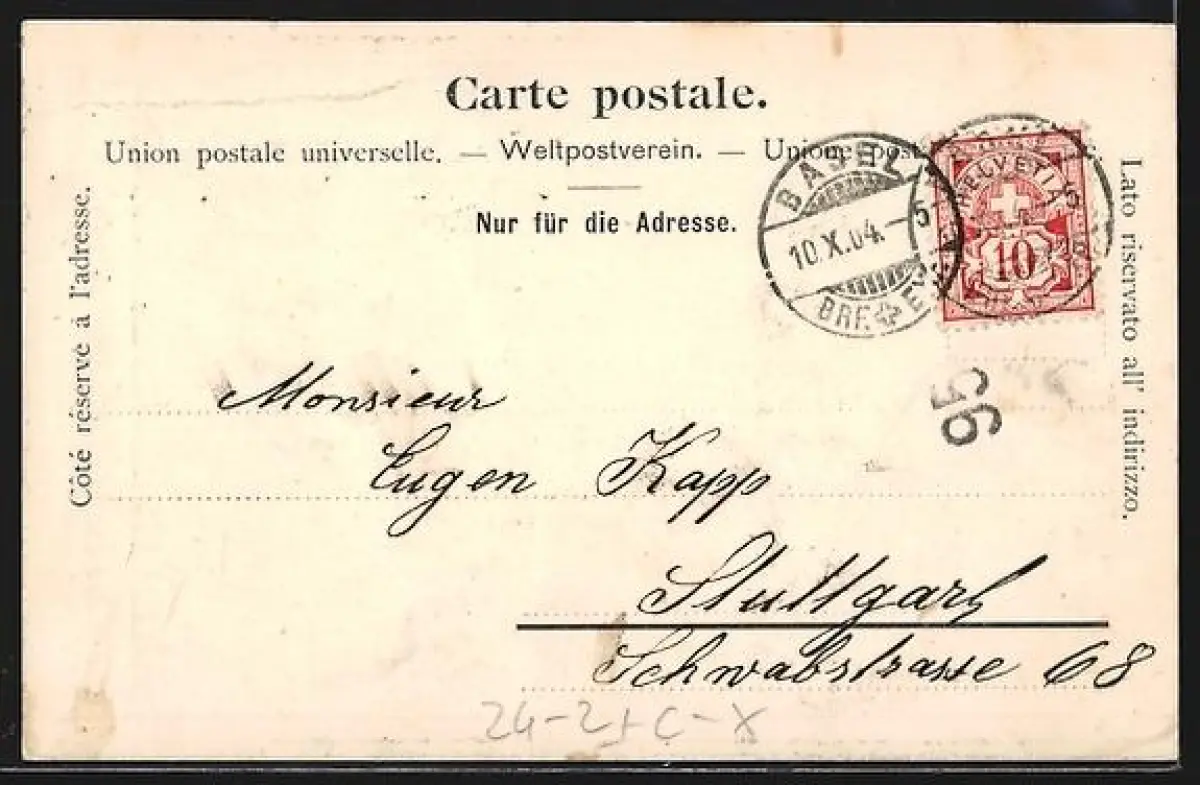 Carte postale.
Union postale universelle. — Weltpostverein. — Unione post
Nur für die Adresse.
Côté réservé à l'adresse.
Lato riservato all' indirizzo.
BASEL
10.X.04.–5
BRF.
HELVETIA
10
56
Monsieur
Eugen Kapp
Stuttgart
Schwabstrasse 68